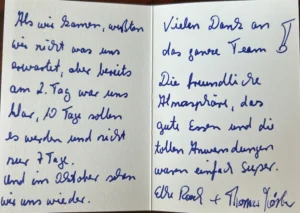 Als wir kamen, wußten
wir nicht was uns
erwartet, aber bereits
am 2. Tag war uns
klar, 10 Tage sollen
es werden und nicht
nur 7 Tage.
Und im Oktober sehen
wir uns wieder.
Vielen Dank an
das ganze Team!
Die freundliche
Atmosphäre, das
gute Essen und die
tollen Anwendungen
waren einfach super.
+ Thomas